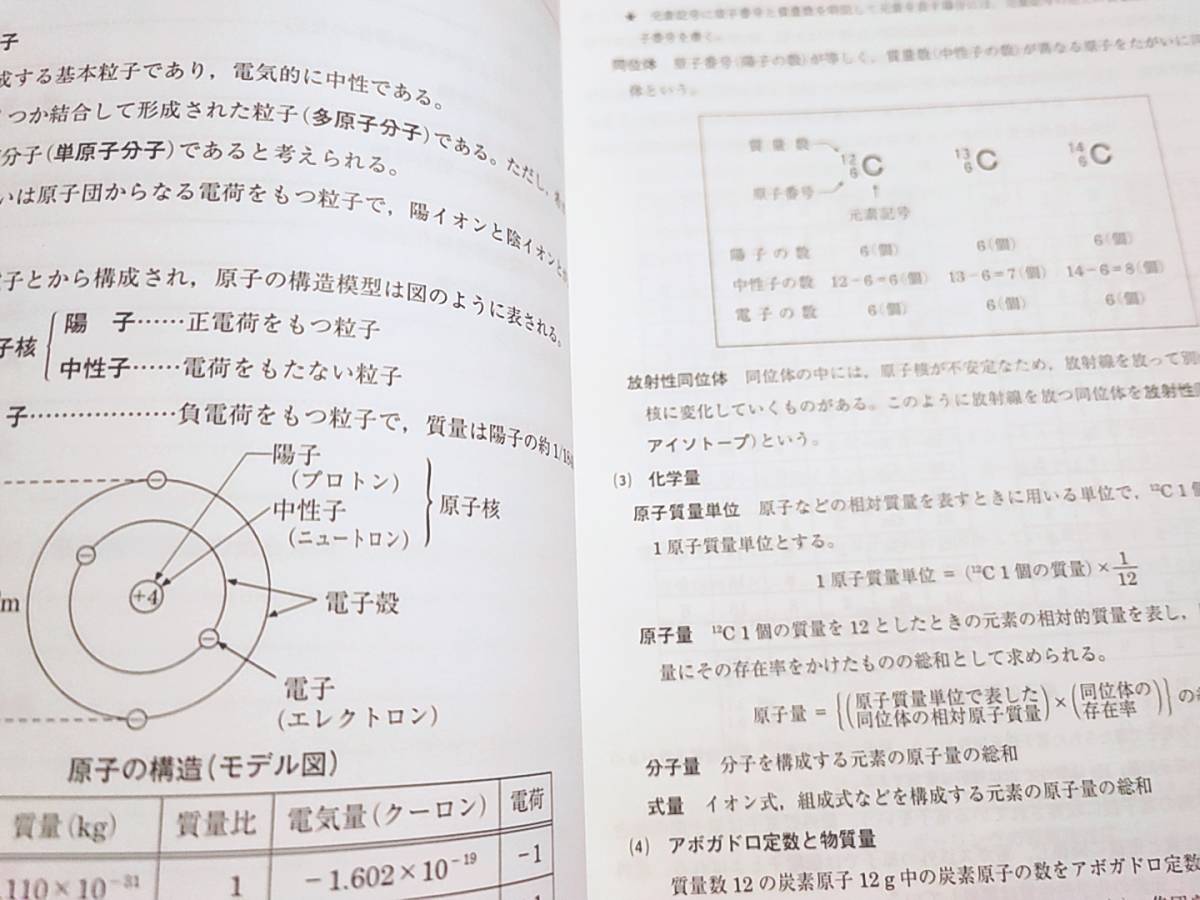 子
成する基本粒子であり，電気的に中性である。
つか結合して形成された粒子(多原子分子)である。ただし，
分子(単原子分子)であると考えられる。
いは原子団からなる電荷をもつ粒子で，陽イオンと陰イオンと
子とから構成され，原子の構造模型は図のように表される。
子核
陽　子……正電荷をもつ粒子
中性子……電荷をもたない粒子
子………………負電荷をもつ粒子で，質量は陽子の約1/18
陽子
(プロトン)
中性子
(ニュートロン)
原子核
+4
m
電子殻
電子
(エレクトロン)
原子の構造(モデル図)
質量(kg) 質量比 電気量(クーロン) 電荷
.110×10⁻³¹ 1 −1.602×10⁻¹⁹ −1
子番号を書く。
同位体　原子番号(陽子の数)が等しく，質量数(中性子の数)が異なる原子をたがいに同
体という。
質量数
¹²₆C ¹³₆C ¹⁴₆C
原子番号
元素記号
陽子の数 6(個) 6(個) 6(個)
中性子の数 12−6=6(個) 13−6=7(個) 14−6=8(個)
電子の数 6(個) 6(個) 6(個)
放射性同位体　同位体の中には，原子核が不安定なため，放射線を放って別
核に変化していくものがある。このように放射線を放つ同位体を放射性
アイソトープ)という。
(3) 化学量
原子質量単位　原子などの相対質量を表すときに用いる単位で，¹²C1個
1原子質量単位とする。
1原子質量単位 = (¹²C1個の質量) × 1/12
原子量　¹²C1個の質量を12としたときの元素の相対的質量を表し，
量にその存在率をかけたものの総和として求められる。
原子量 = {(原子質量単位で表した同位体の相対原子質量) × (同位体の存在率)} の
分子量　分子を構成する元素の原子量の総和
式量　イオン式，組成式などを構成する元素の原子量の総和
(4) アボガドロ定数と物質量
質量数12の炭素原子12g中の炭素原子の数をアボガドロ定数